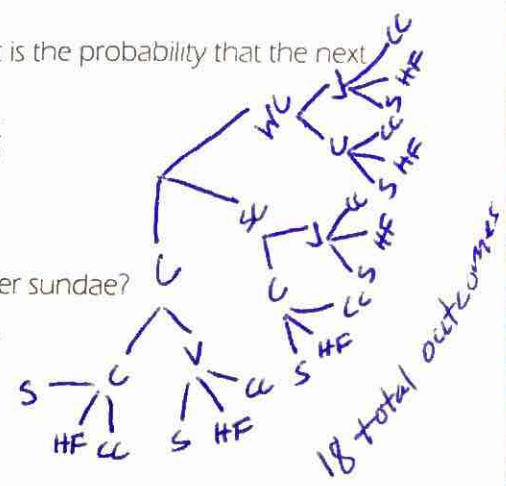 is the probability that the next
er sundae?
WC
V
CC
HF
S
C
CC
HF
S
V
CC
HF
S
C
CC
HF
S
C
C
S
HF
CC
V
S
HF
CC
18 total outcomes